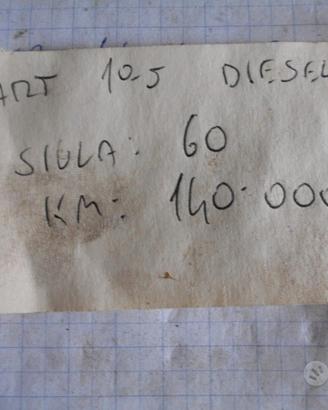 ART 10-5 DIESEL
SIGLA: 60
KM: 140.000